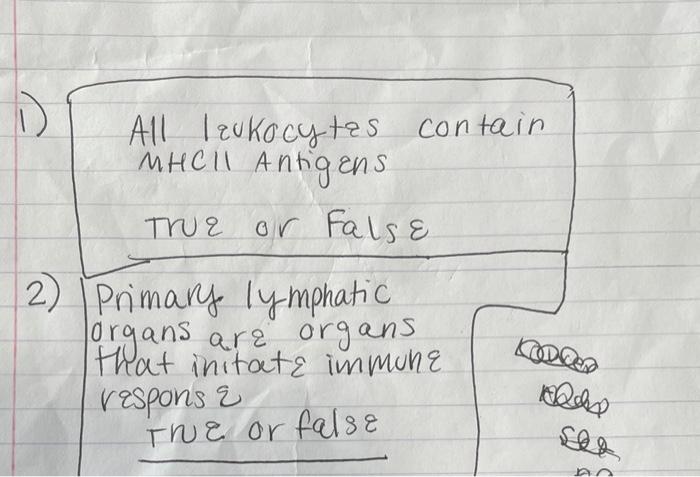 1) All leukocytes contain
MHCII Antigens
True or False
2) Primary lymphatic
organs are organs
that initate immune
response
True or false